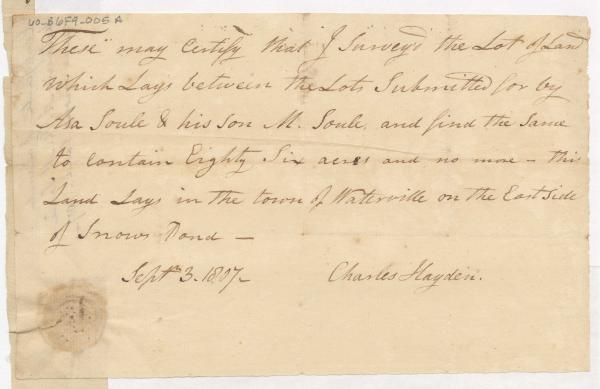 60-B6F9-005A
These may Certify that I Survey'd the Lot of Land
which Lays between the Lots Submitted for by
Asa Soule & his Son M. Soule, and find the Same
to contain Eighty Six acres and no more – this
Land Lays in the town of Waterville on the East Side
of Snows Pond —
Sept. 3. 1807 Charles Hayden.